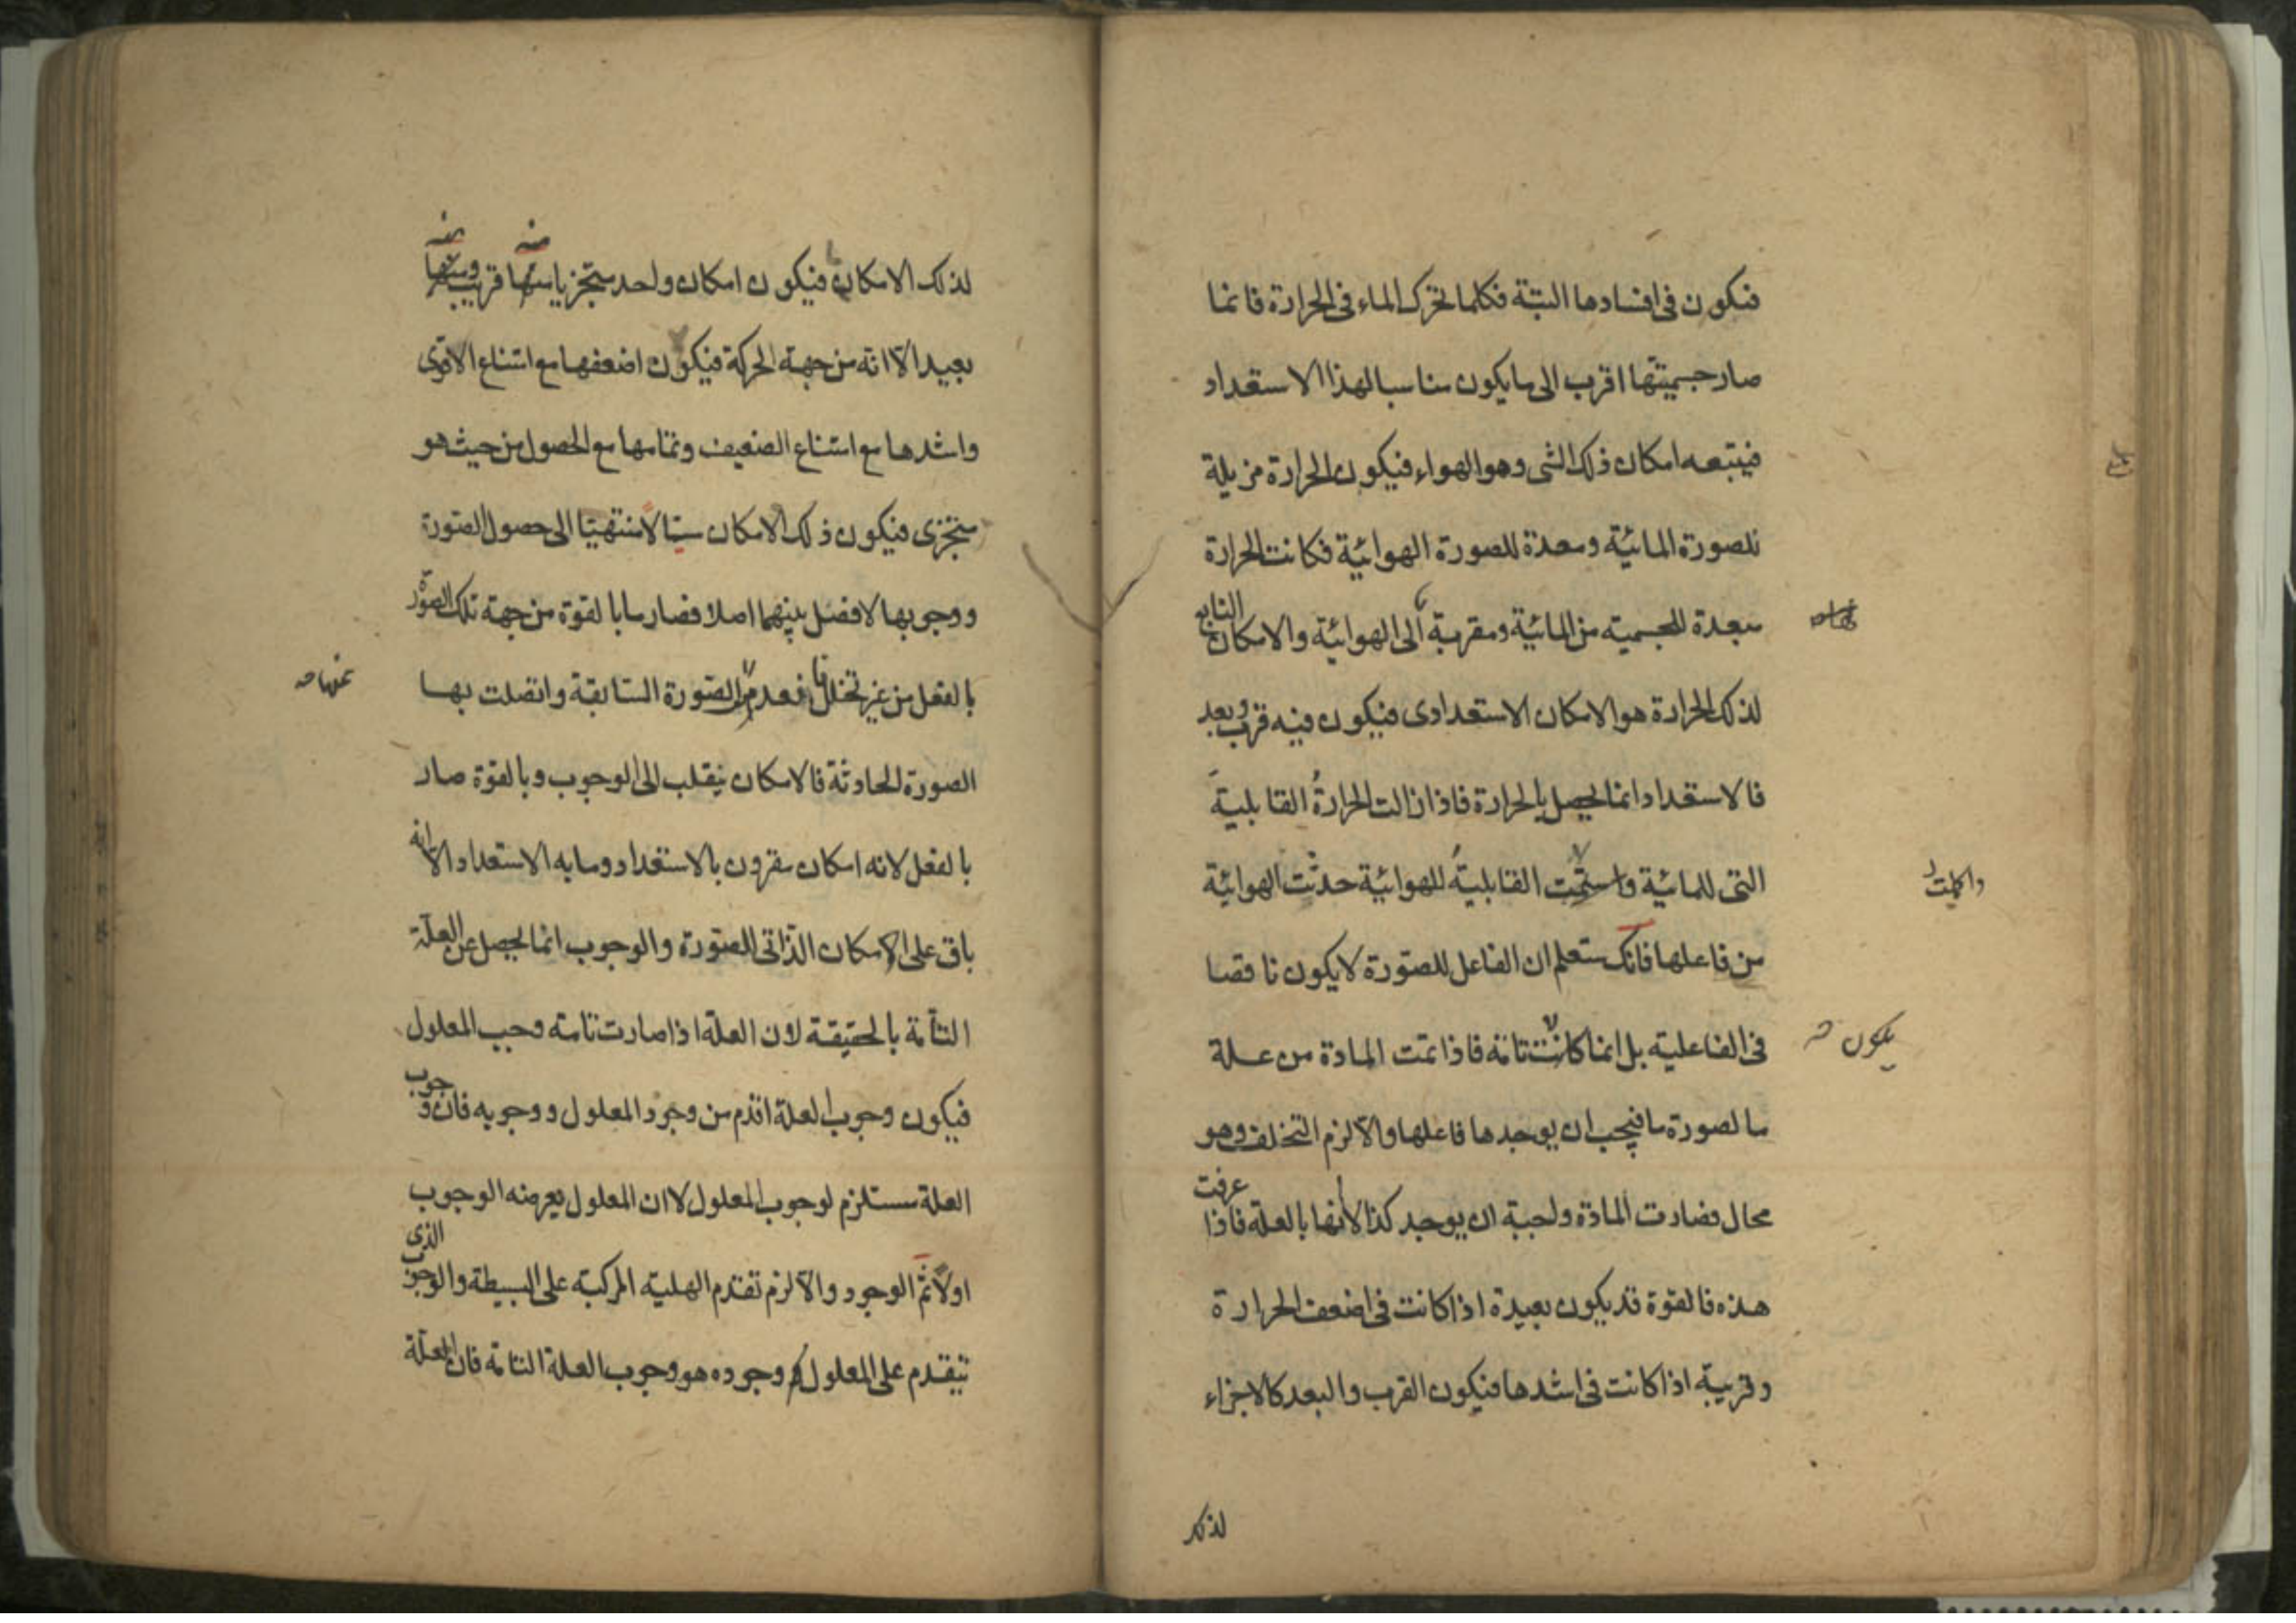 فيكون فى افسادها البتة فكلما تحرك الماء فى الحرارة فانما
صار جسميتها اقرب الى ما يكون مناسبا لهذا الاستعداد
فيتبعه امكان ذلك الشى وهو الهواء فيكون الحرارة مزيلة
للصورة المائية ومعدة للصورة الهوائية فكانت الحرارة
مبعدة للجسمية من المائية ومقربة الى الهوائية والامكان التابع
لذلك الحرارة هو الامكان الاستعدادى فيكون فيه قرب وبعد
فالاستعداد انما يحصل بالحرارة فاذا زالت الحرارة القابلية
التى للمائية واستتمت القابلية للهوائية حدثت الهوائية
واكملت
من فاعلها فانك ستعلم ان الفاعل للصورة لا يكون ناقصا
فى الفاعلية بل انما كانت تامة فاذا تمت المادة من علة
يكون
ما لصورة ما فيجب ان يوجدها فاعلها والا لزم التخلف وهو
محال فصارت المادة واجبة ان يوجد كذا لانها بالعلة فاذا عرفت
هذه فالقوة قد يكون بعيدة اذا كانت فى اضعف الحرارة
وقريبة اذا كانت فى اشدها فيكون القرب والبعد كالاجزاء
لذلك
لذلك الامكان فيكون امكان واحد متجزيا منها قريب ومنها
منه
بعيد الا انه من جهة الحركة فيكون اضعفها مع امتناع الاقوى
واشدها مع امتناع الضعيف وتمامها مع الحصول من حيث هو
متجزى فيكون ذلك الامكان سيالا منتهيا الى حصول الصورة
ووجوبها لا فصل بينهما اصلا فصار ما بالقوة من جهة تلك الصورة
بالفعل من غير تخلل فعدم الصورة السابقة واتصلت بها
الصورة الحادثة فالامكان ينقلب الى الوجوب وبالقوة صار
بالفعل لانه امكان مقرون بالاستعداد وما به الاستعداد الا انه
باق على الامكان الذاتى للصورة والوجوب انما يحصل عن العلة
التامة بالحقيقة لان العلة اذا صارت تامة وجب المعلول
فيكون وجوب العلة اقدم من وجود المعلول ووجوبه فان وجوب
العلة مستلزم لوجوب المعلول لا ان المعلول يعرضه الوجوب
اولا ثم الوجود والا لزم تقدم الهلية المركبة على البسيطة والوجوب الذى
يتقدم على المعلول ووجوده هو وجوب العلة التامة فان العلة